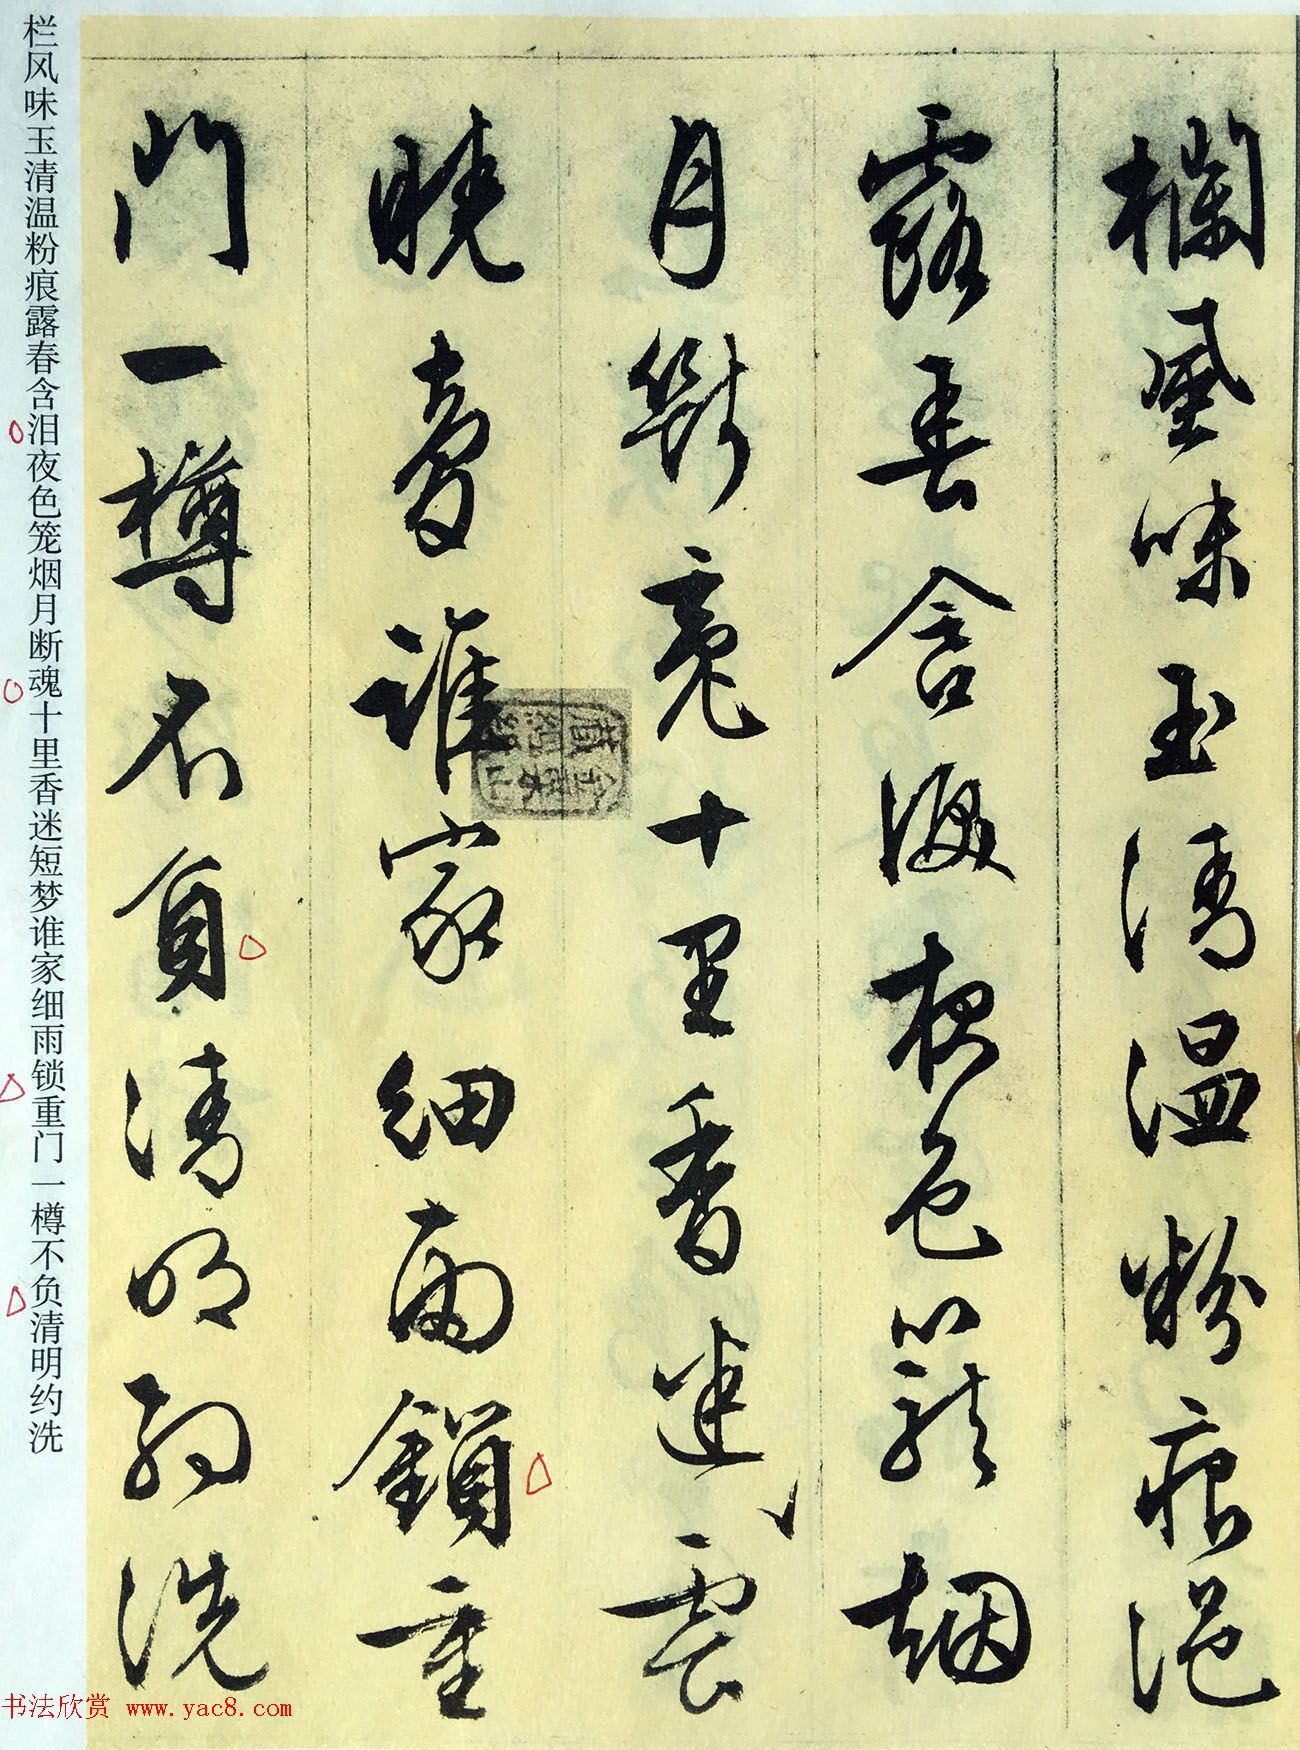 欄風味玉清温粉痕浥
露春含淚夜色籠烟
月斷魂十里香迷雲
曉夢誰家細雨鎖重
門一樽不負清明約洗
栏风味玉清温粉痕露春含泪夜色笼烟月断魂十里香迷短梦谁家细雨锁重门一樽不负清明约洗
书法欣赏 www.yac8.com